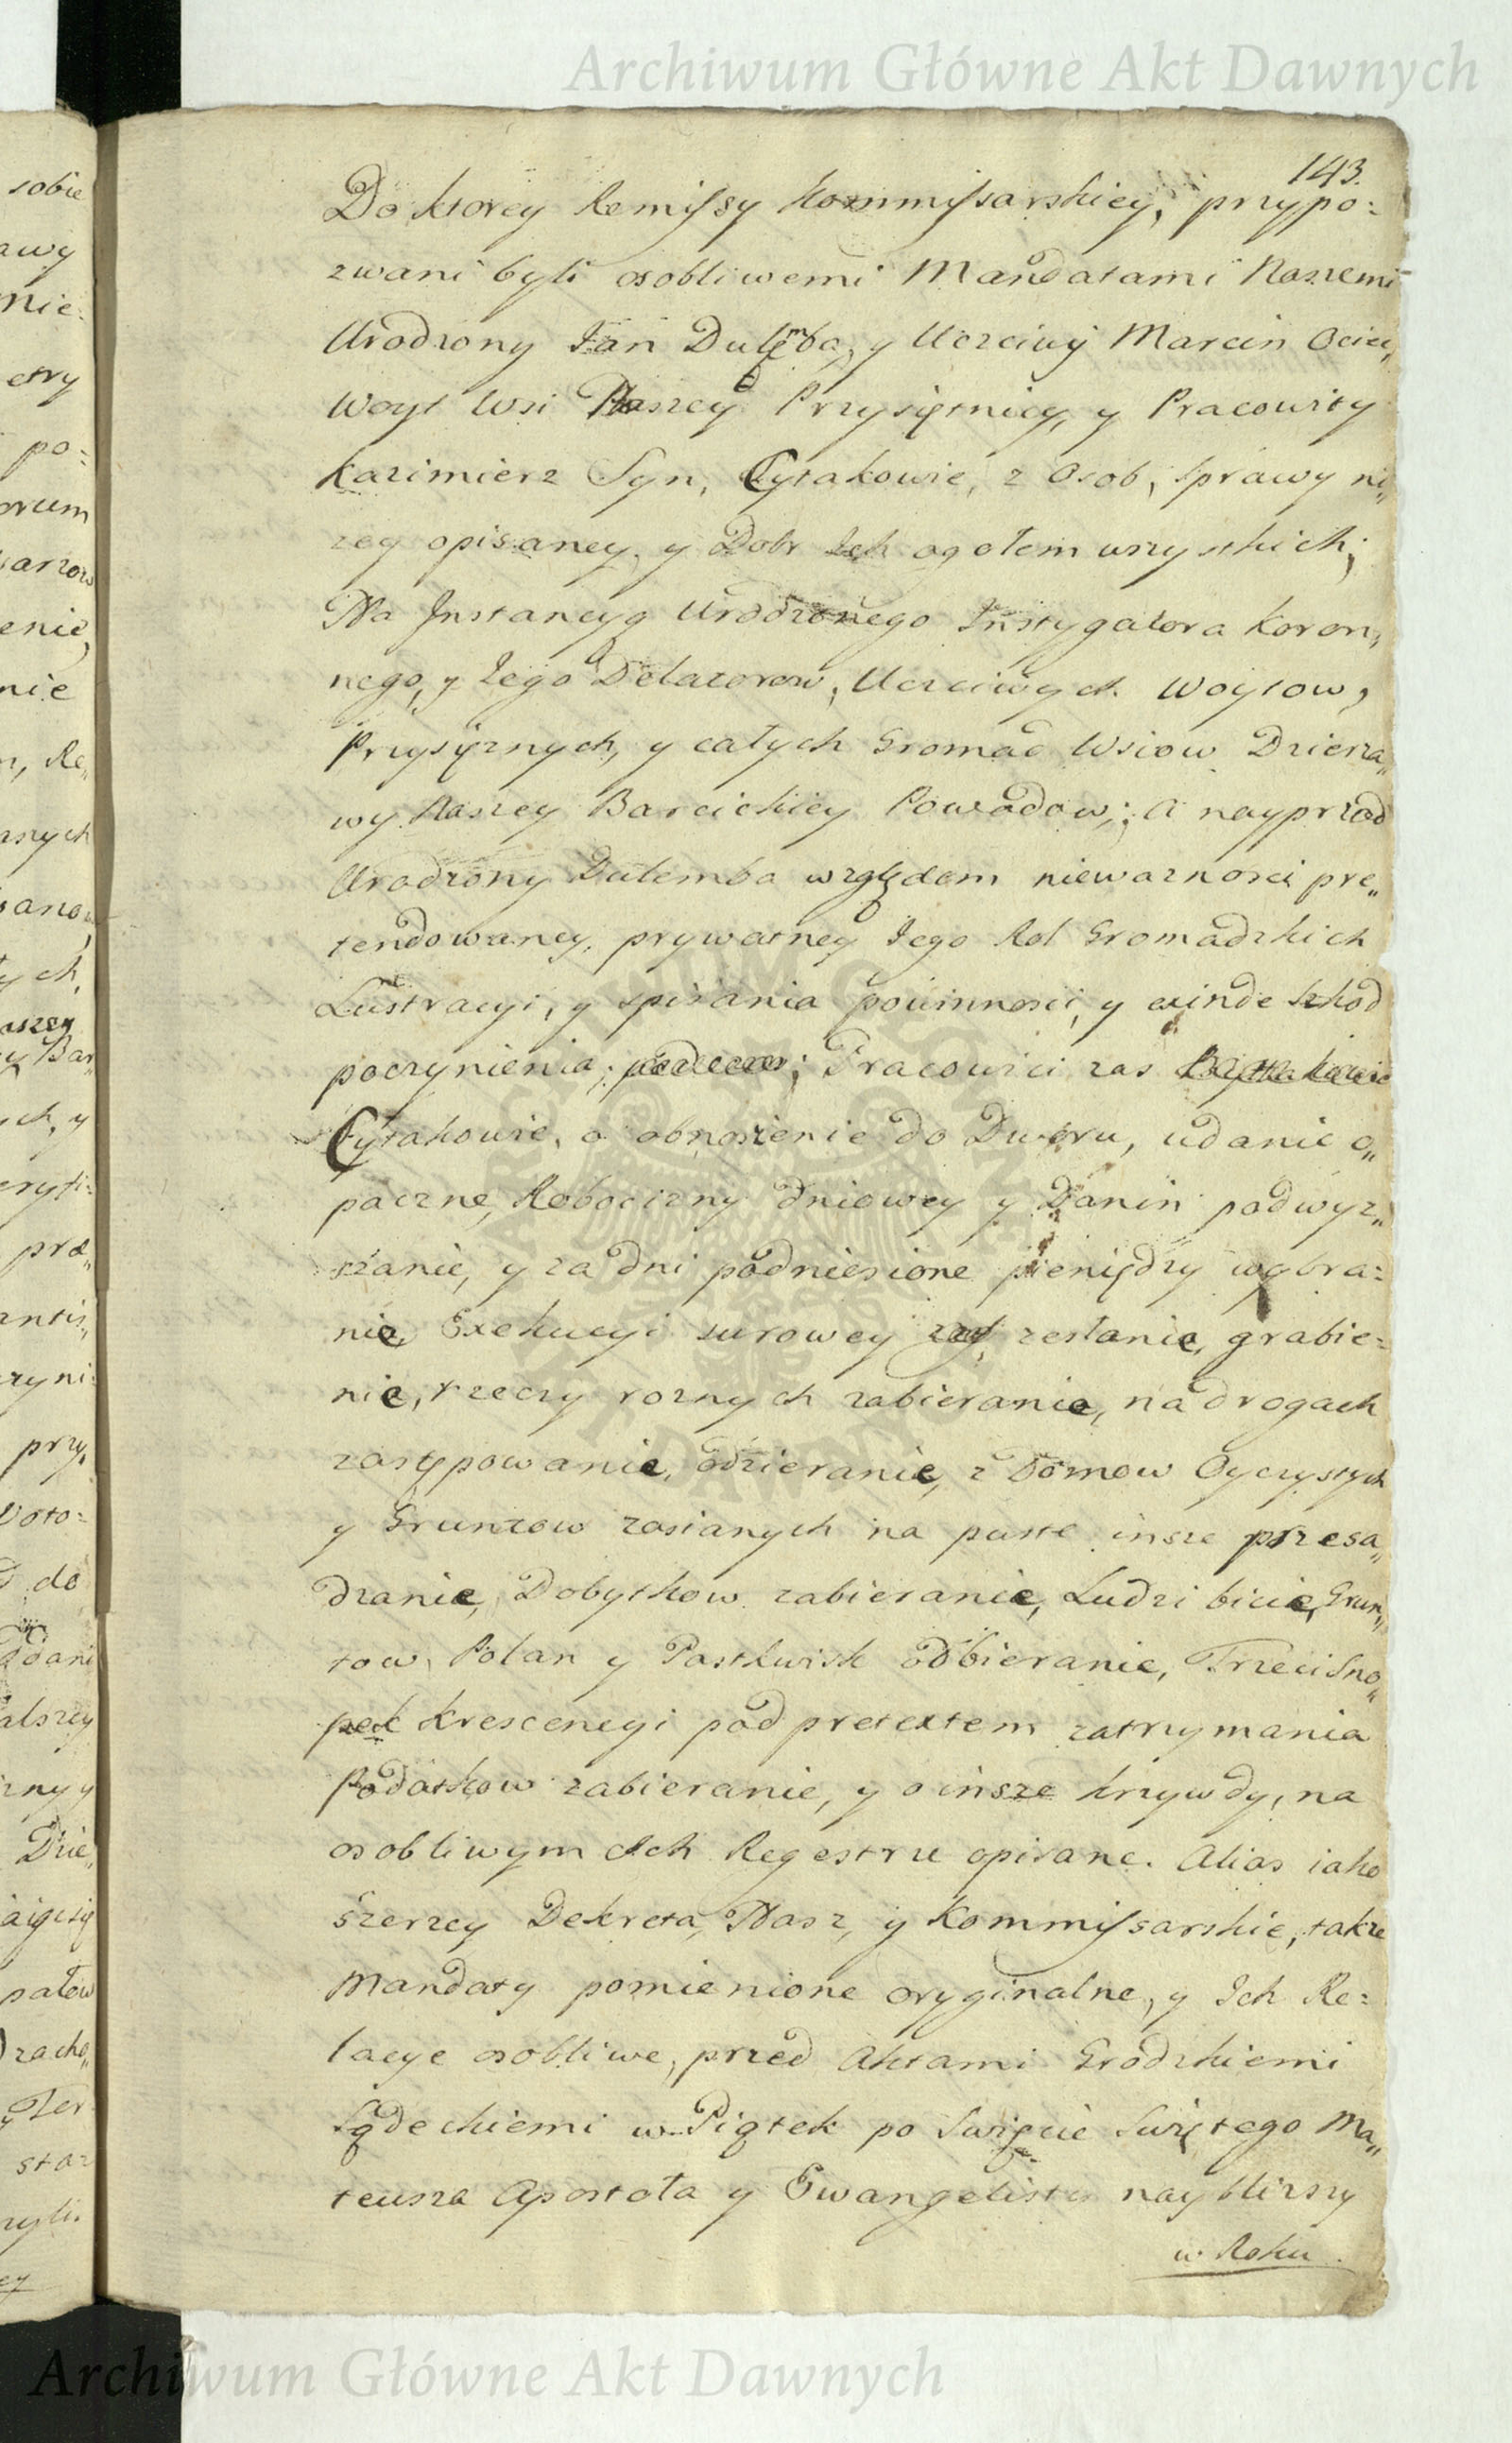 Archiwum Główne Akt Dawnych
143.
Do ktorey Remissy Kommissarskiey, przypo=
zwani byli osobliwemi Mandatami Naszemi
Urodzony Jan Dulęba, y Uczciwy Marcin Ociec,
Woyt Wsi Naszey Przysietnicy, y Pracowity
Kazimierz Syn, Cytakowie, z Osob, Sprawy ni„
zey opisaney, y Dobr Ich ogołem wszystkich;
Na Instancyą Urodzonego Instygatora Koron„
nego, y Jego Delatorow, Uczciwych Woytow,
Przysiężnych, y całych Gromad Wsiow Dzierża„
wy Naszey Barcickiey Powodow; A nayprzod
Urodzony Dulemba względem nieważności pre„
tendowaney, prywatney Jego Rol Gromadzkich
Lustracyi, y spisania powinnosci, y exinde szkod
poczynienia; Pracowici zas
Cytakowie, o obnoszenie do Dworu, udanie o„
paczne, Robocizny dniowey y Danin podwyż„
szanie, y za dni podniesione pieniędzy wybra=
nie, Exekucyi surowey zesłanie, grabie=
nie, rzeczy roznych zabieranie, na drogach
zastępowanie, odzieranie, z Domow Oyczystych
y Gruntow zasianych na puste insze przesa„
dzanie, Dobytkow zabieranie, Ludzi bicie, Grun„
tow, Polan y Pastwisk odbieranie, Trzeci Sno„
pek Krescencyi pod pretextem zatrzymania
Podatkow zabieranie, y o insze krzywdy, na
osobliwym Ich Regestrze opisane. Alias iako
szerzey Dekreta, Nasz, y Kommissarskie, takze
Mandaty pomienione oryginalne, y Ich Re=
lacye osobliwe, przed Aktami Grodzkiemi
Sądeckiemi w Piątek po Swięcie Swiętego Ma„
teusza Apostoła y Ewangelisty nayblizszy
w Roku
Archiwum Główne Akt Dawnych